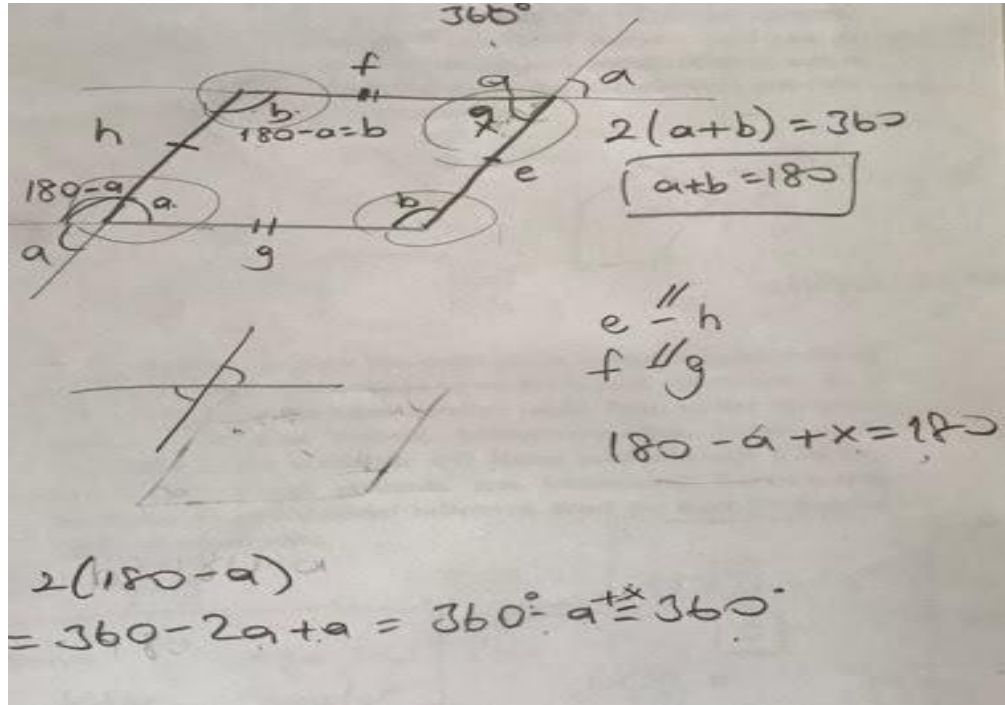 360°
f
a
a
b
180-a=b
h
x
2(a+b)=360
a+b=180
e
180-a
a
b
a
g
e // h
f // g
180-a+x=180
2(180-a)
= 360-2a+a = 360°-a+x=360°